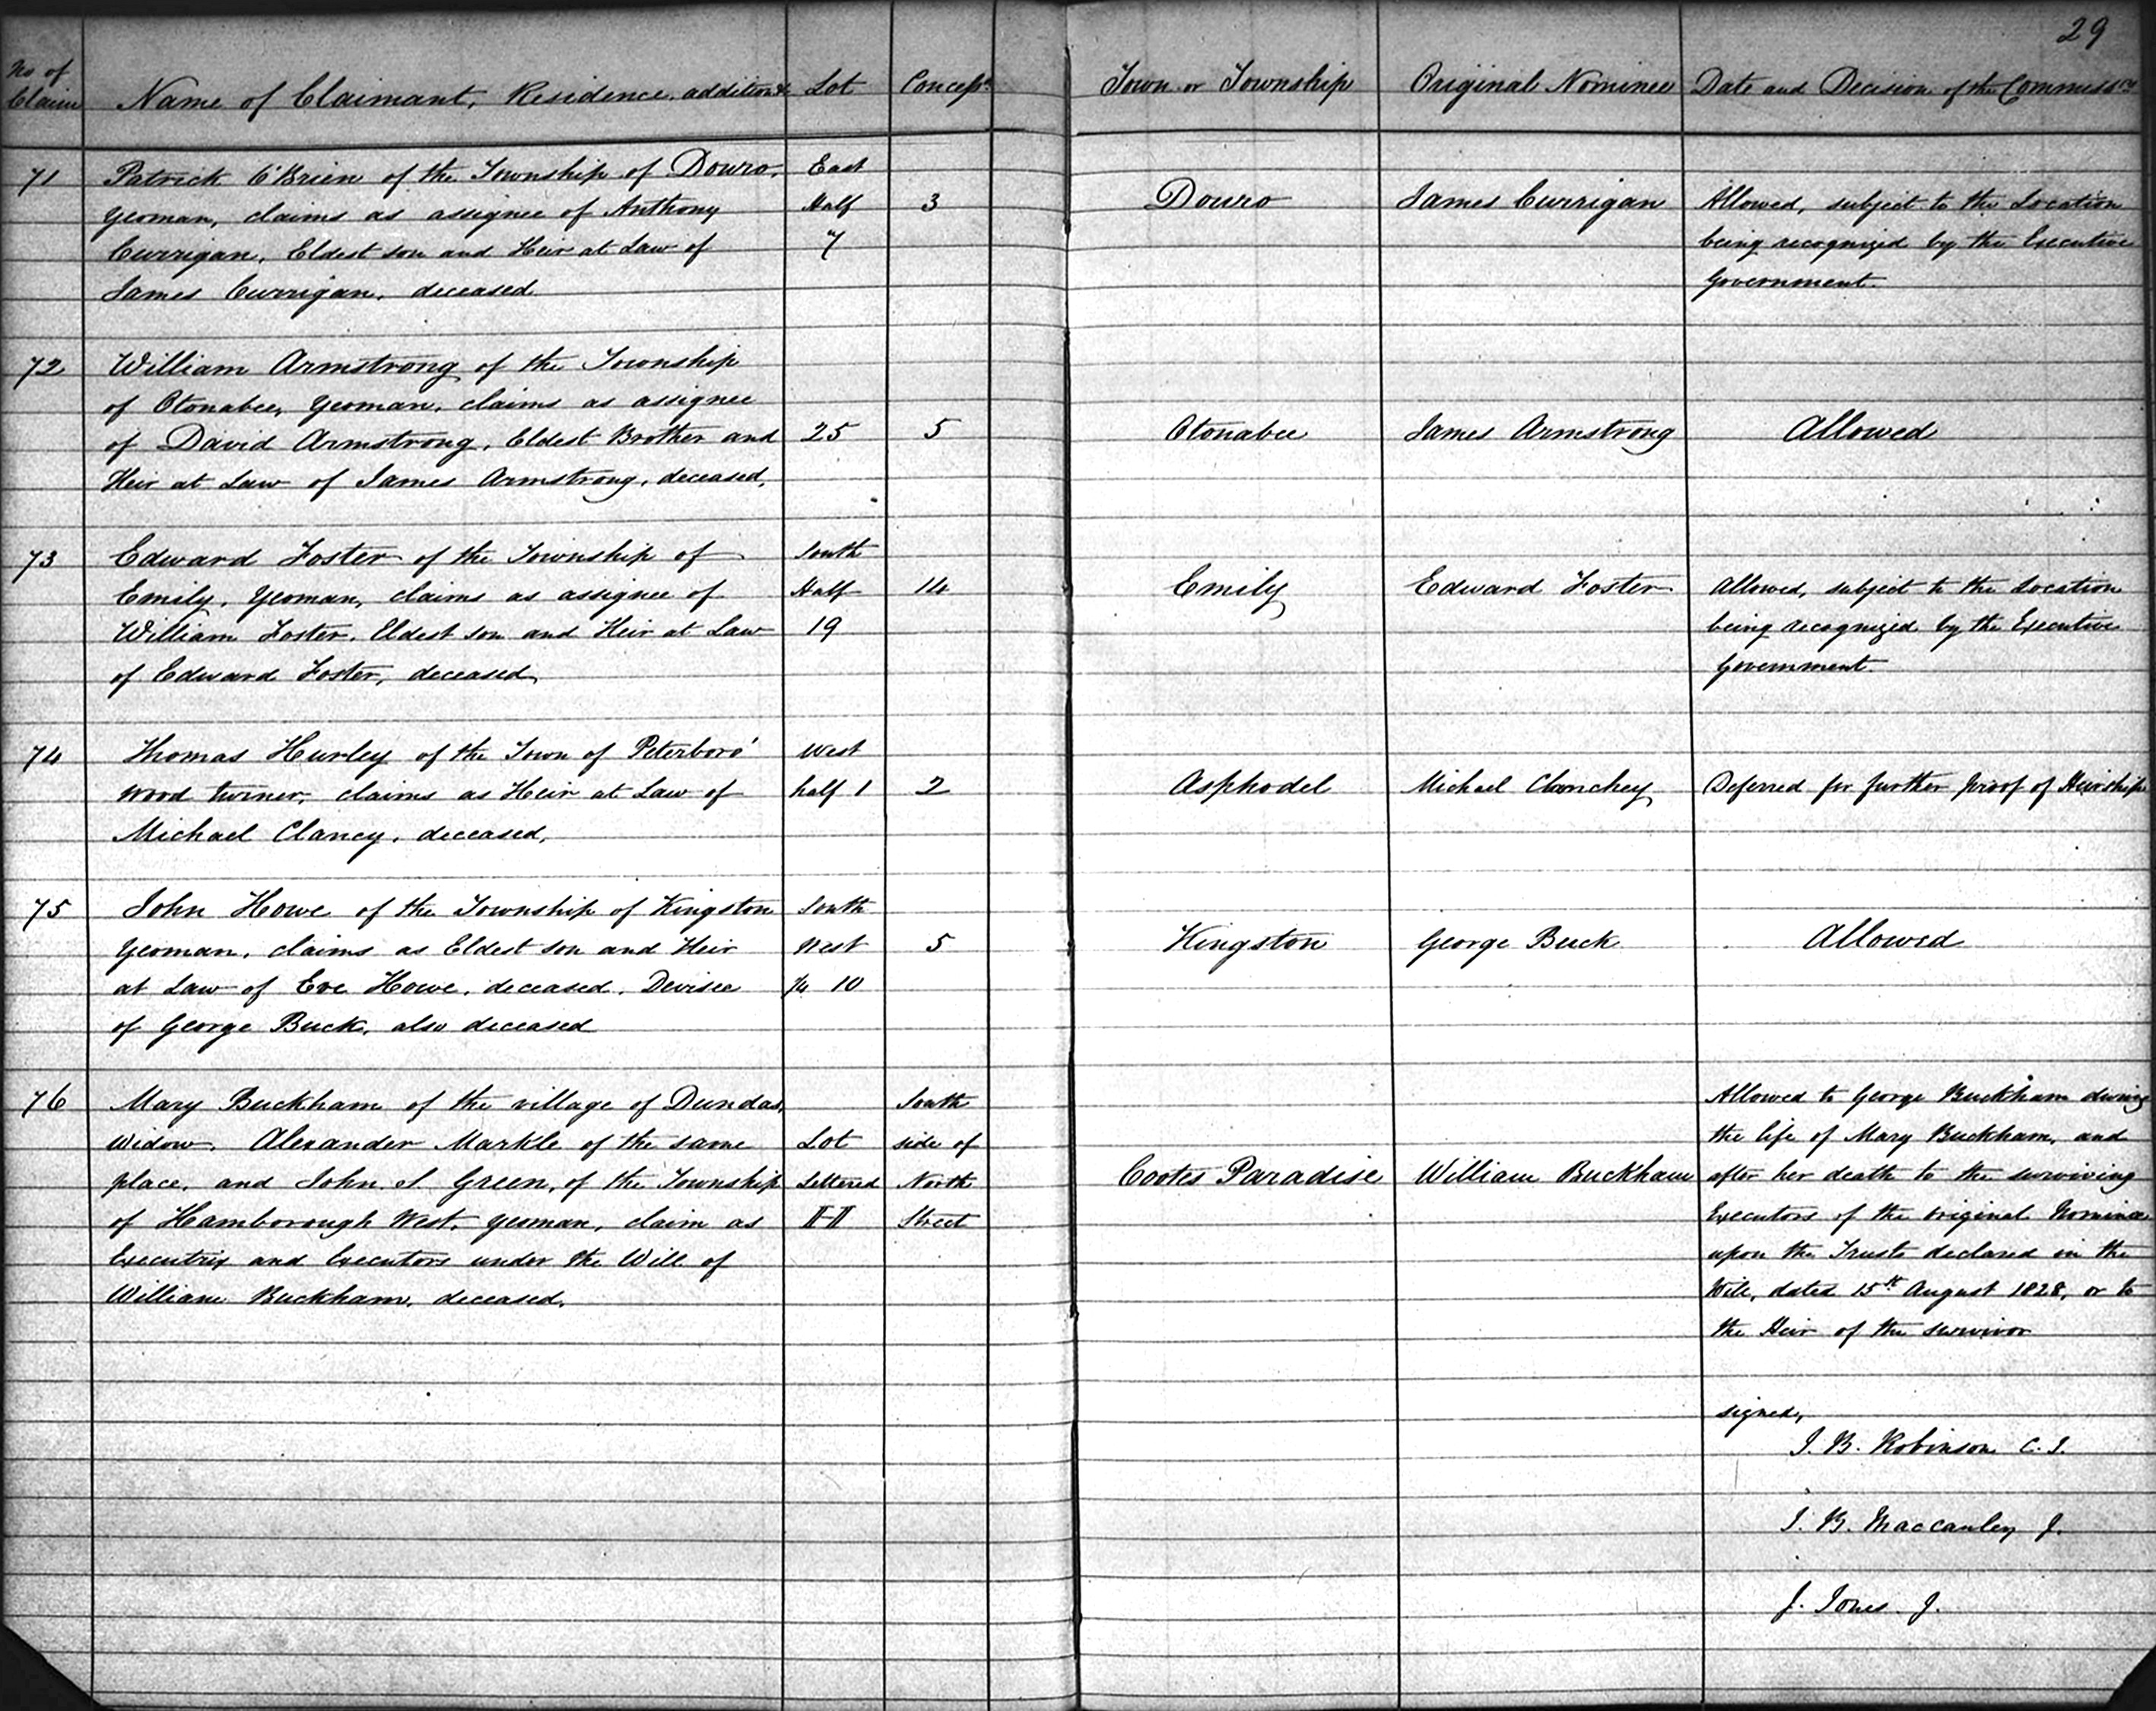 29
No of Claim
Name of Claimant, Residence, addition &
Lot
Concessn
Town or Township
Original Nominee
Date and Decision of the Commissrs
71
Patrick O'Brien of the Township of Douro,
Yeoman, claims as assignee of Anthony
Currigan, Eldest son and Heir at Law of
James Currigan, deceased
East
Half
7
3
Douro
James Currigan
Allowed, subject to the Location
being recognized by the Executive
Government.
72
William Armstrong of the Township
of Otonabee, Yeoman, claims as assignee
of David Armstrong, Eldest Brother and
Heir at Law of James Armstrong, deceased,
25
5
Otonabee
James Armstrong
Allowed
73
Edward Foster of the Township of
Emily, Yeoman, claims as assignee of
William Foster, Eldest son and Heir at Law
of Edward Foster, deceased,
South
Half
19
14
Emily
Edward Foster
Allowed, subject to the Location
being recognized by the Executive
Government.
74
Thomas Hurley of the Town of Peterboro'
Wood turner, claims as Heir at Law of
Michael Clancy, deceased,
West
half 1
2
Asphodel
Michael Clanchey
Deferred for further proof of Heirship
75
John Howe of the Township of Kingston
Yeoman, claims as Eldest son and Heir
at Law of Eve Howe, deceased, Devisee
of George Buck, also deceased
South
West
1/4 10
5
Kingston
George Buck
Allowed
76
Mary Buckham of the village of Dundas,
Widow, Alexander Markle of the same
place, and John S. Green, of the Township
of Flamborough West, yeoman, claim as
Executrix and Executors under the Will of
William Buckham, deceased,
Lot
Lettered
H
South
side of
North
Street
Cootes Paradise
William Buckham
Allowed to George Buckham during
the life of Mary Buckham, and
after her death to the surviving
Executors of the original Nominee
upon the Trusts declared in the
Will, dated 15th August 1828, or to
the Heir of the survivor
signed,
J. B. Robinson C. J.
J. B. Maccauley J.
J. Jones J.